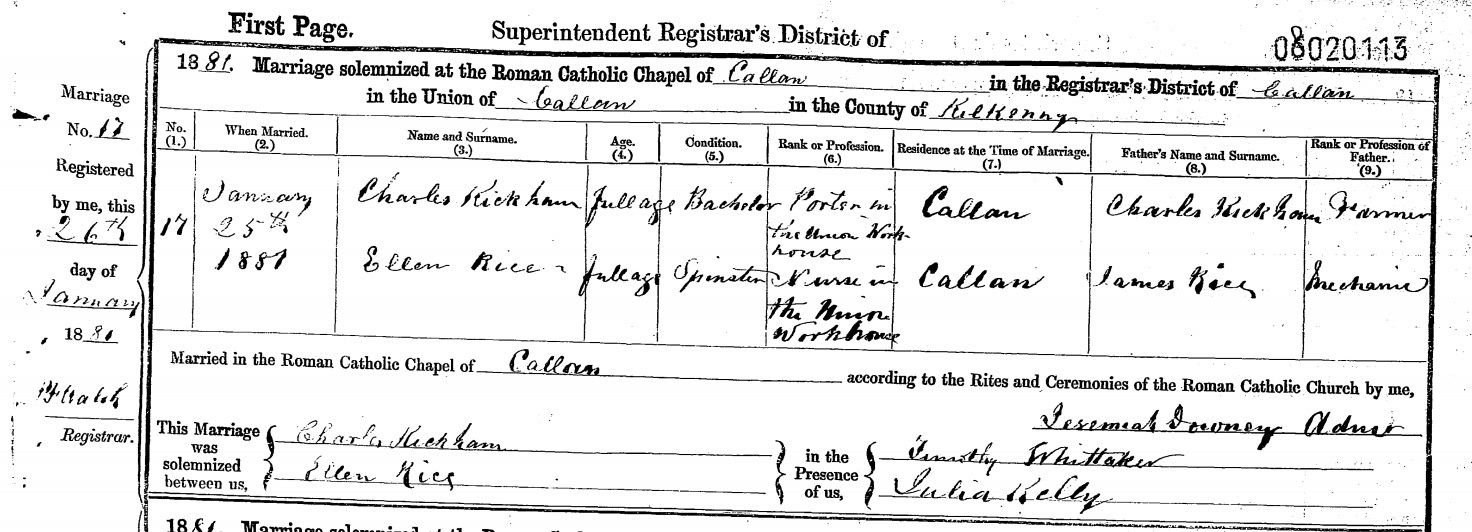 First Page. Superintendent Registrar's District of
08020113
1881. Marriage solemnized at the Roman Catholic Chapel of Callan in the Registrar's District of Callan
in the Union of Callan in the County of Kilkenny
No. (1.) When Married. (2.) Name and Surname. (3.) Age. (4.) Condition. (5.) Rank or Profession. (6.) Residence at the Time of Marriage. (7.) Father's Name and Surname. (8.) Rank or Profession of Father. (9.)
17 January 25th 1881
Charles Kickham full age Bachelor Porter in the Union Work-house Callan Charles Kickham Farmer
Ellen Rice full age Spinster Nurse in the Union Workhouse Callan James Rice Mechanic
Married in the Roman Catholic Chapel of Callan according to the Rites and Ceremonies of the Roman Catholic Church by me,
Jeremiah Downey Admr
This Marriage was solemnized between us,
Charles Kickham
Ellen Rice
in the Presence of us,
Timothy Whittaker
Julia Kelly
Marriage
No. 17
Registered
by me, this
26th
day of
January
1881
Registrar.
1881. Marriage solemnized at the